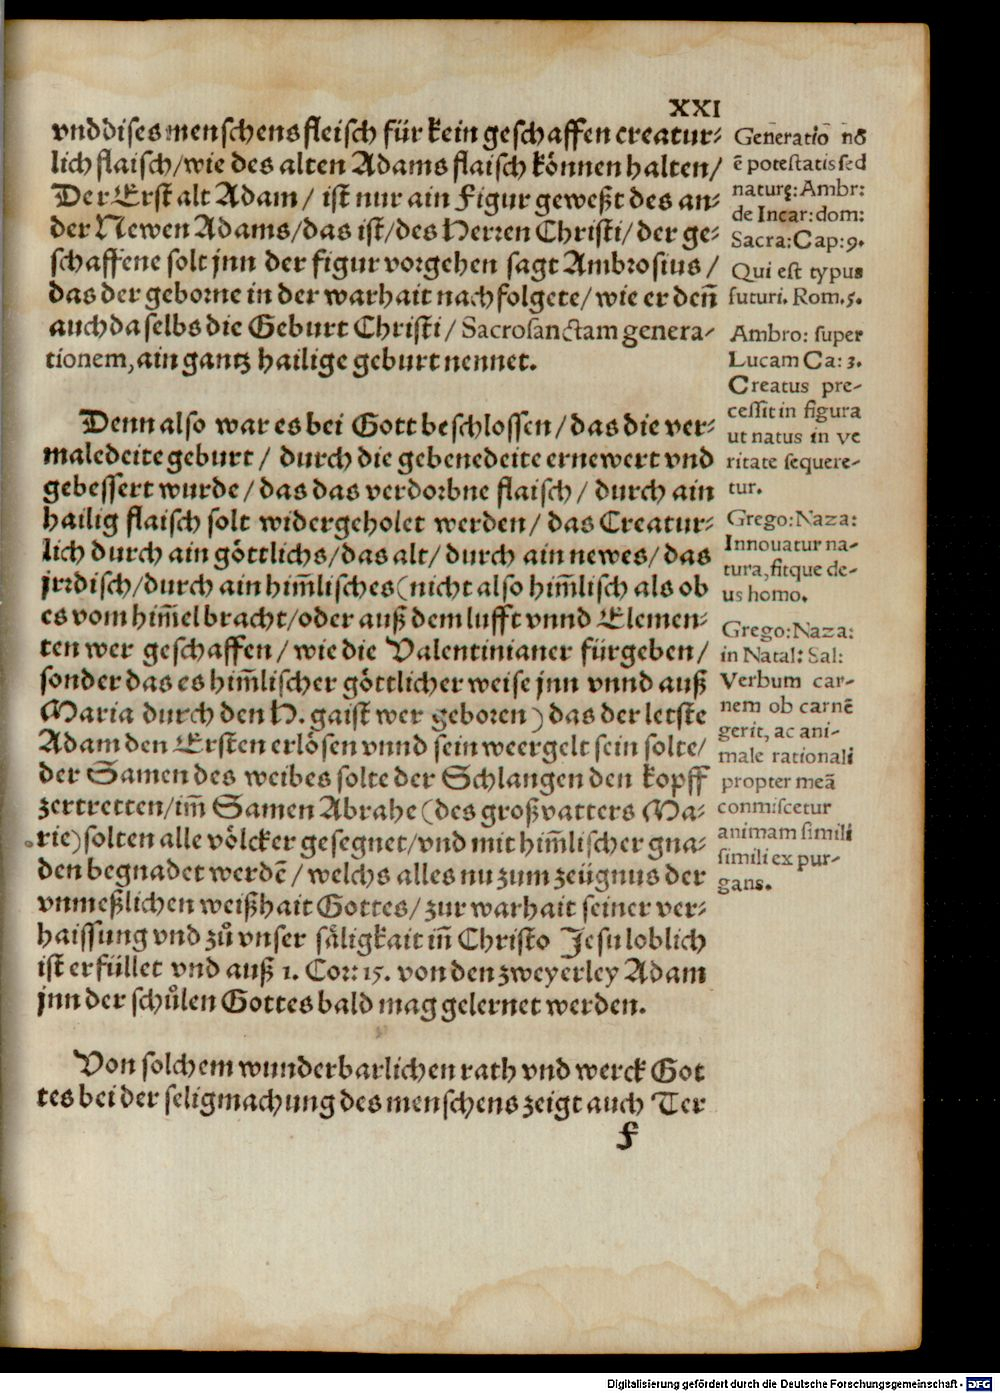 XXI
vnd dises menschens fleisch für kein geschaffen creatur-
lich flaisch/wie des alten Adams flaisch können halten/
Der Erst alt Adam/ ist nur ain Figur geweßt des an-
der Newen Adams/das ist/des Herren Christi/ der ge-
schaffene solt jnn der figur vorgehen sagt Ambrosius/
das der geborne in der warhait nachfolgete/wie er deñ
auch daselbs die Geburt Christi/ Sacrosanctam genera-
tionem, ain gantz hailige geburt nennet.
Denn also war es bei Gott beschlossen/das die ver-
maledeite geburt/ durch die gebenedeite ernewert vnd
gebessert wurde/das das verdorbne flaisch/ durch ain
hailig flaisch solt widergeholet werden/ das Creatur-
lich durch ain göttlichs/das alt/durch ain newes/das
jrrdisch/durch ain him̃lisches(nicht also him̃lisch als ob
es vom him̃el bracht/oder auß dem lufft vnnd Elemen-
ten wer geschaffen/wie die Valentinianer fürgeben/
sonder das es him̃lischer göttlicher weise jnn vnnd auß
Maria durch den H. gaist wer geboren) das der letste
Adam den Ersten erlösen vnnd sein weergelt sein solte/
der Samen des weibes solte der Schlangen den kopff
zertretten/im̃ Samen Abrahe(des großvatters Ma-
rie)solten alle völcker gesegnet/vnd mit him̃lischer gna-
den begnadet werdẽ/welchs alles nu zum zeügnus der
vnmeßlichen weißhait Gottes/zur warhait seiner ver-
haissung vnd zů vnser säligkait iñ Christo Jesu loblich
ist erfüllet vnd auß 1. Cor: 15. von den zweyerley Adam
jnn der schůlen Gottes bald mag gelernet werden.
Von solchem wunderbarlichen rath vnd werck Got
tes bei der seligmachung des menschens zeigt auch Ter
f
Generatio nõ
ẽ potestatis sed
naturę: Ambr:
de Incar: dom:
Sacra: Cap: 9.
Qui est typus
futuri. Rom. 5.
Ambro: super
Lucam Ca: 3.
Creatus pre-
cessit in figura
ut natus in ve
ritate sequere-
tur.
Grego: Naza:
Innouatur na-
tura, fitque de-
us homo.
Grego: Naza:
in Natal: Sal:
Verbum car-
nem ob carnẽ
gerit, ac ani-
male rationali
propter meã
conmiscetur
animam simili
simili ex pur-
gans.
Digitalisierung gefördert durch die Deutsche Forschungsgemeinschaft - DFG